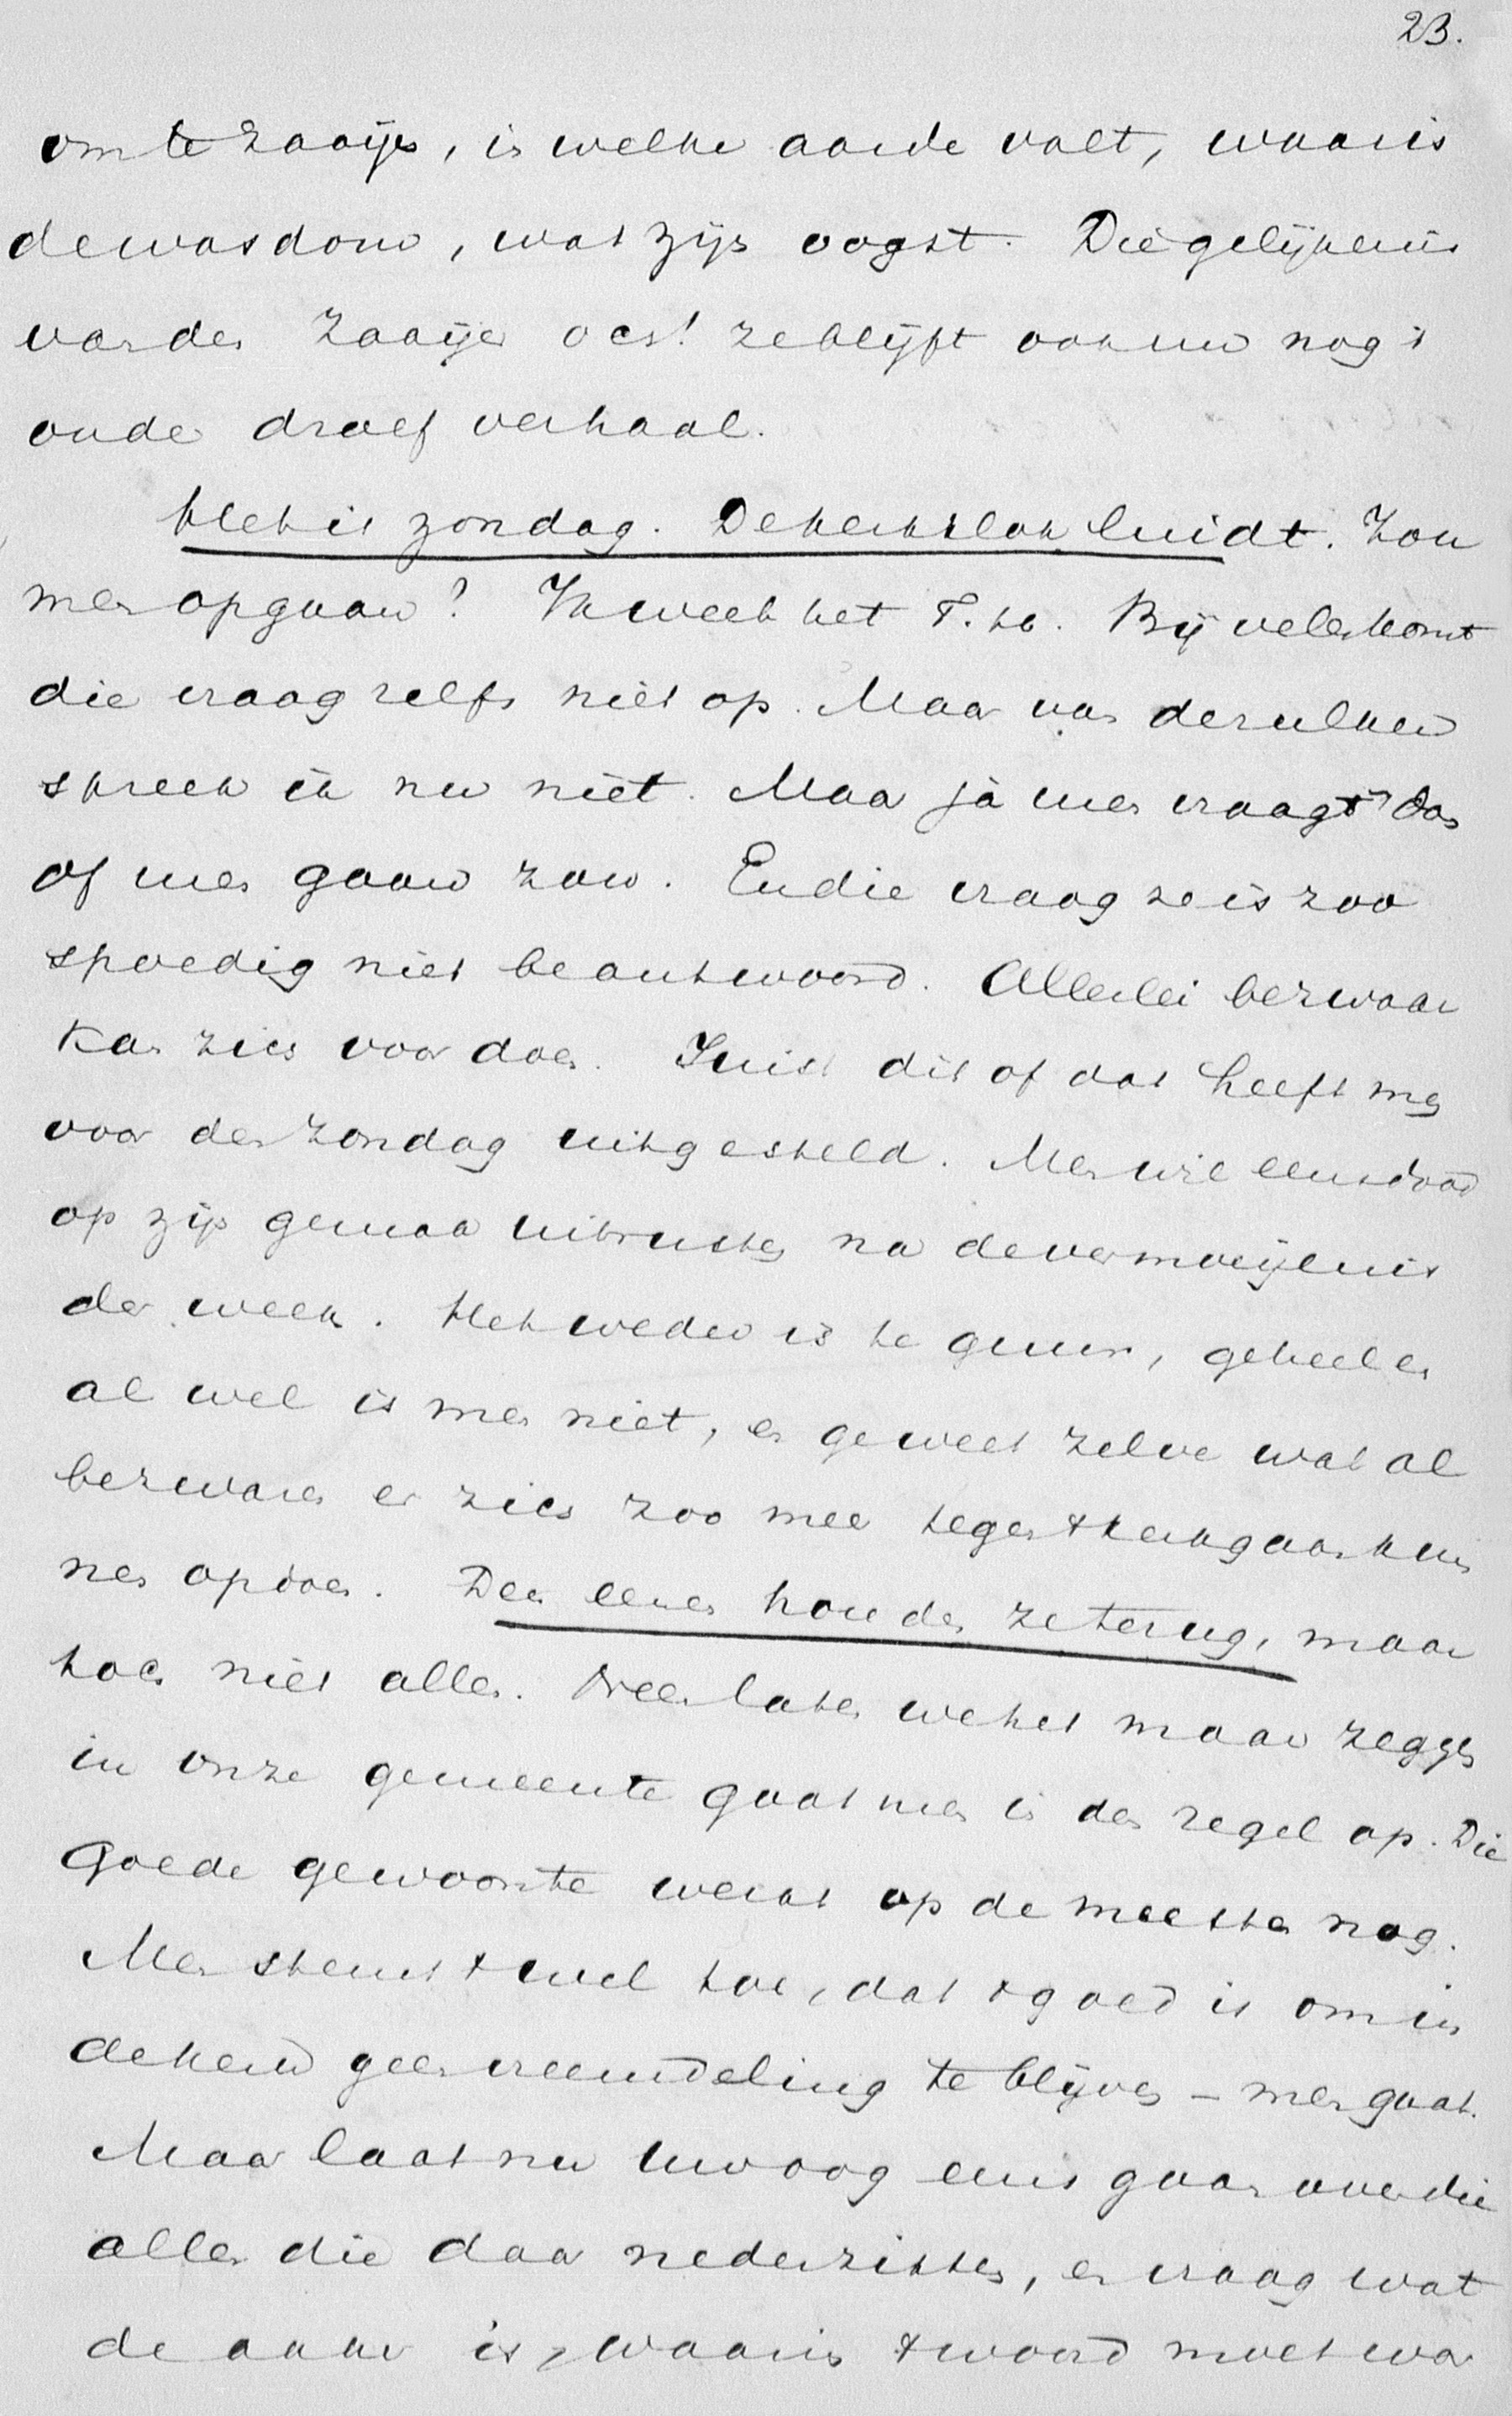 23.
om te zaaijen, in welke aarde valt, waar is
de wasdom, wat zijn oogst. Die gelijkenis
van den zaaijer och! ze blijft ook nu nog 't
oude droef verhaal.
Het is zondag. De kerkklok luidt. Zou
men opgaan? Ik weet het T. h. Bij velen komt
die vraag zelfs niet op. Maar van derzulken
spreek ik nu niet. Maar ja men vraagt dan
of men gaan zou. En die vraag ze is zoo
spoedig niet beantwoord. Allerlei bezwaar
kan zich voor doen. Juist dit of dat heeft men
voor den zondag uitgesteld. Men wil eens daar
op zijn gemak uitrusten na de vermoeijenis
der week. Het weder is te guur, geheel en
al wel is men niet, en ge weet zelve wat al
bezwaren er zich zoo mee tegen 't kerkgaan kun
nen opdoen. Den eenen houden ze terug, maar
toch niet allen. Neen laten we het maar zeggen
in onze gemeente gaat men in den regel op. Die
goede gewoonte werkt op de meesten nog.
Men stemt 't wel toe, dat 't goed is om in
de kerk geen vreemdeling te blijven – men gaat.
Maar laat nu uw oog eens gaan over die
allen die daar nederzitten, en vraag wat
de akker is, waarin 't woord moet wor